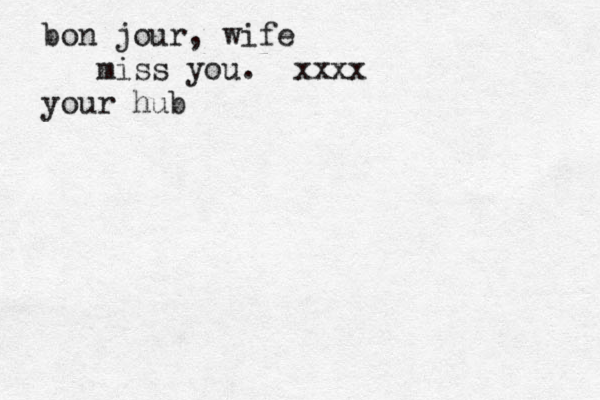 bon jour, wife
miss you. xxxx
your hub